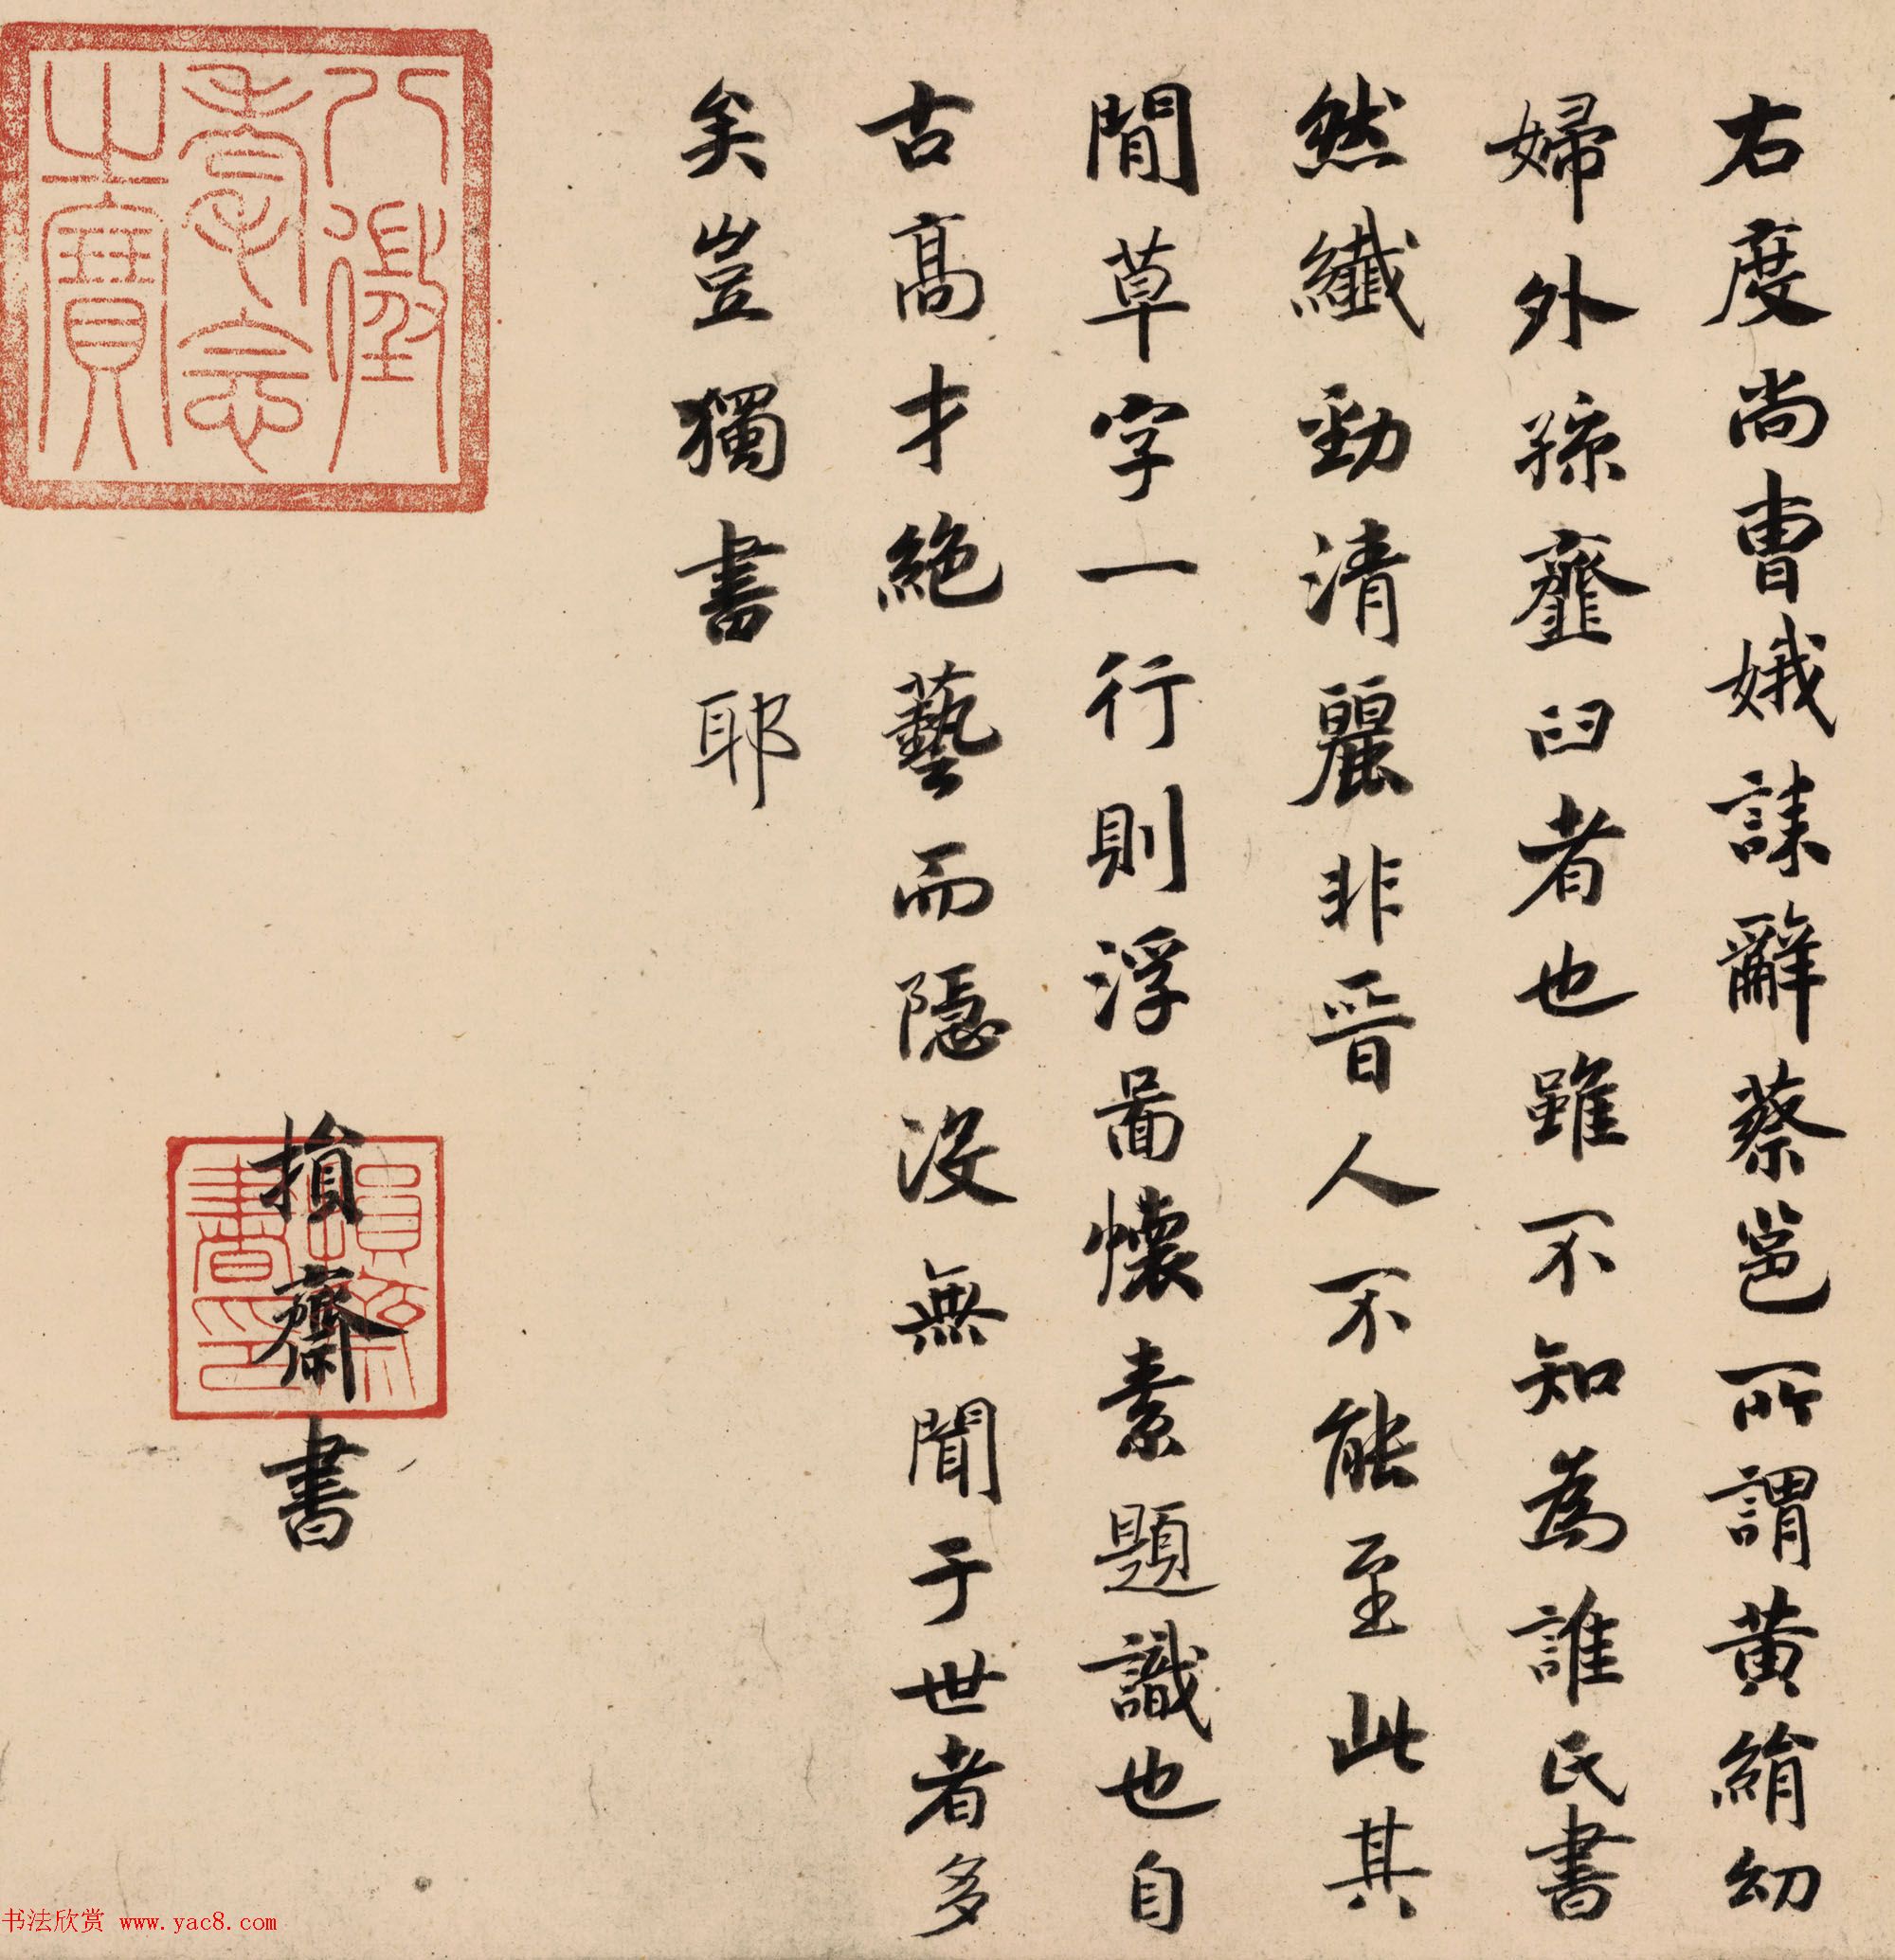 右度尚曹娥誄辭蔡邕所謂黃絹幼
婦外孫齏臼者也雖不知為誰氏書
然纖勁清麗非晉人不能至此其
間草字一行則浮圖懷素題識也自
古高才絕藝而隱沒無聞于世者多
矣豈獨書耶
損齋書
八徵耄念之寶
損齋書印
书法欣赏 www.yac8.com